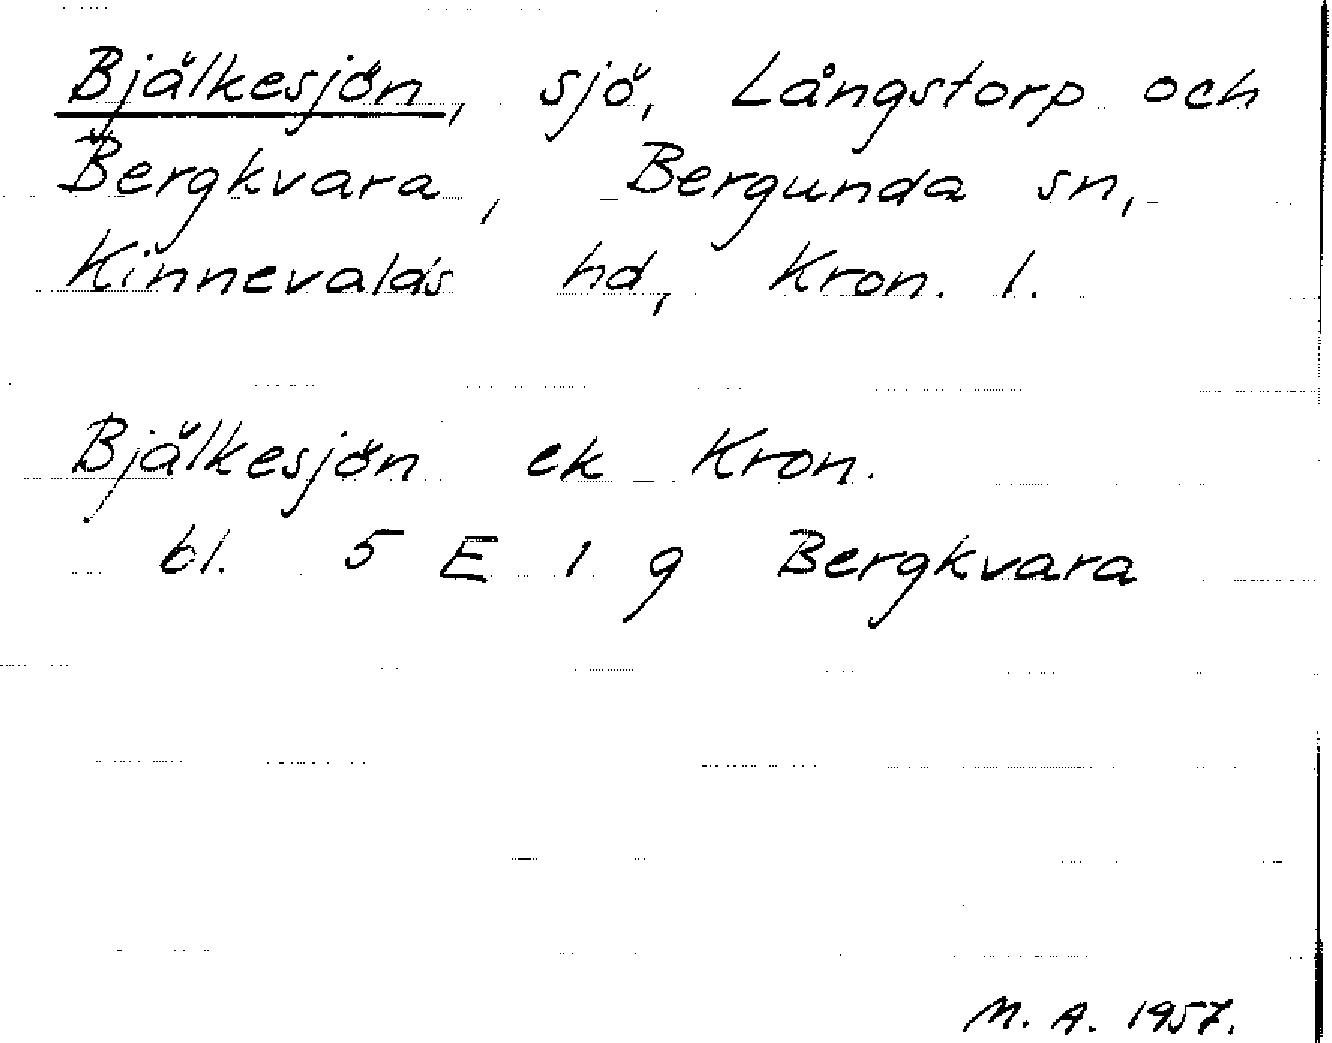 Bjälkesjön, sjö, Långstorp och
Bergkvara, Bergunda sn,
Kinnevalds hd, Kron. l.
Bjälkesjön ek Kron.
bl. 5 E 1 g Bergkvara
M. A. 1957.